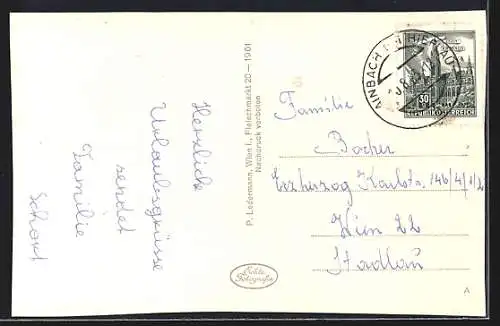 Herzliche
Urlaubsgrüsse
sendet
Familie
Schorf
P. Ledermann, Wien I., Fleischmarkt 20 – 1901
Nachdruck verboten
Echte
Fotografie
Familie
Bocher
Erzherzog Karlstr. 146/4/
Wien 22
Stadlau
30
REPUBLIK ÖSTERREICH
A